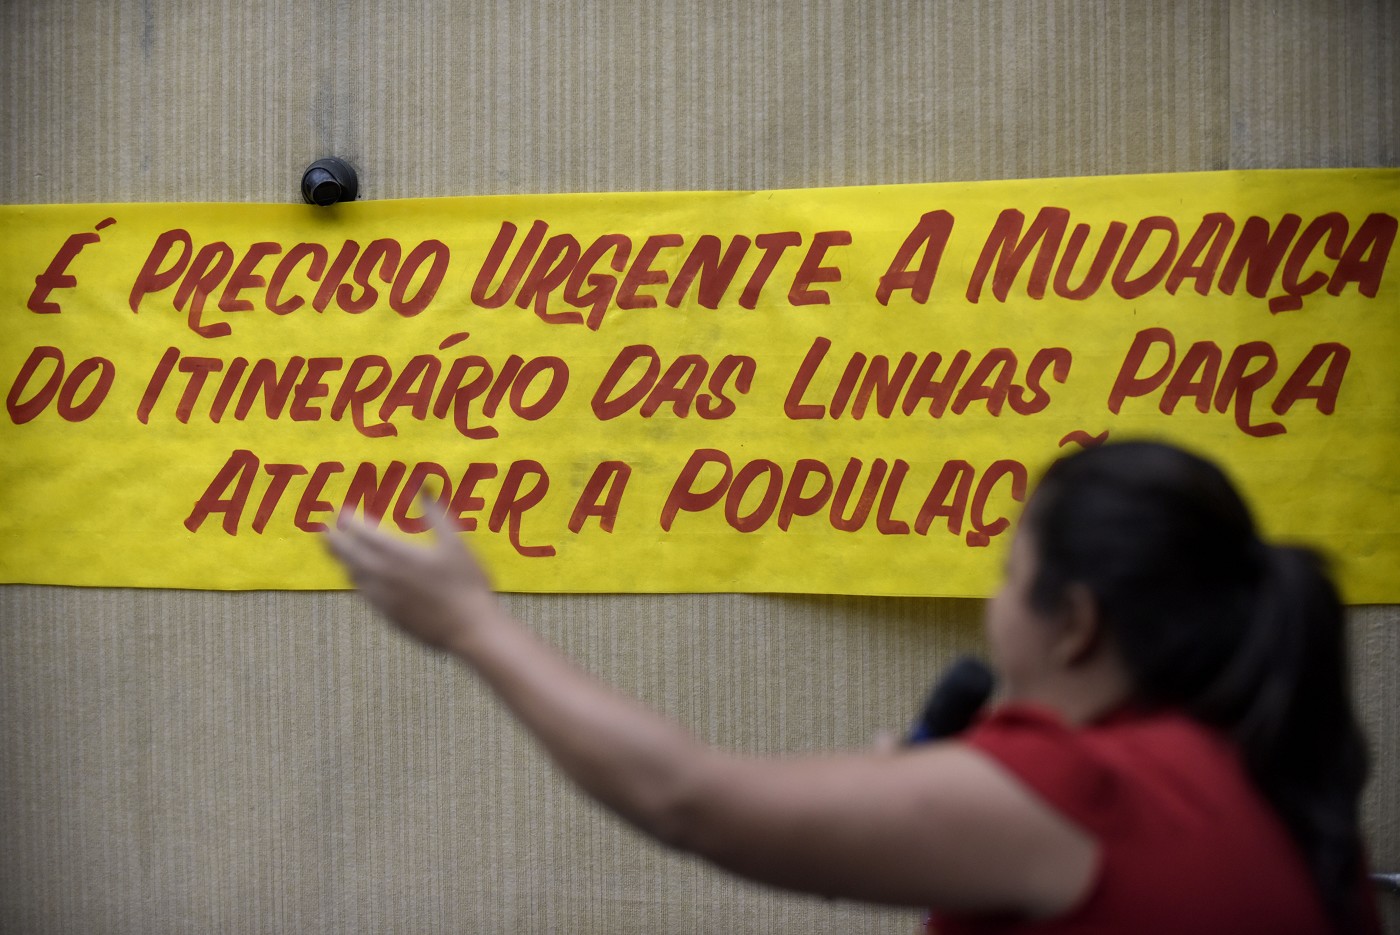 É PRECISO URGENTE A MUDANÇA
DO ITINERÁRIO DAS LINHAS PARA
ATENDER A POPULAÇÃ